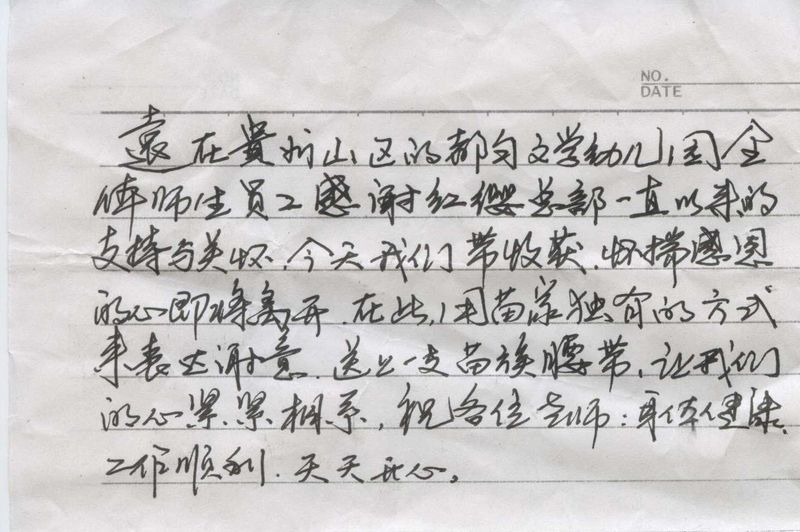 NO.
DATE
遠在贵州山区的都匀文学幼儿园全
体师生员工感谢红缨总部一直以来的
支持与关怀.今天我们带收获.怀揣感恩
的心即将离开.在此,用苗家独有的方式
来表达谢意.送上一支苗族腰带.让我们
的心紧紧相系,祝各位老师:身体健康.
工作顺利.天天开心。